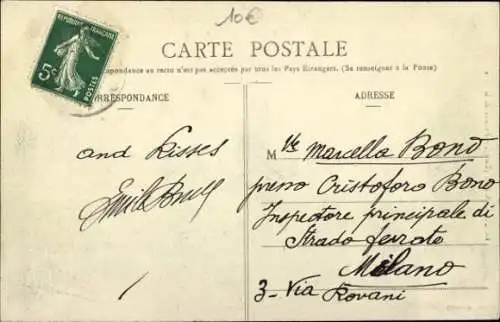 10€
REPUBLIQUE FRANÇAISE
5c
POSTES
CARTE POSTALE
pondance au recto n'est pas acceptée par tous les Pays Etrangers. (Se renseigner à la Poste)
RRESPONDANCE
ADRESSE
and Kisses
Mlle Marcella Bono
presso Cristoforo Bono
Inspectore principale di
Strado ferrate
Milano
3 - Via
Rovani